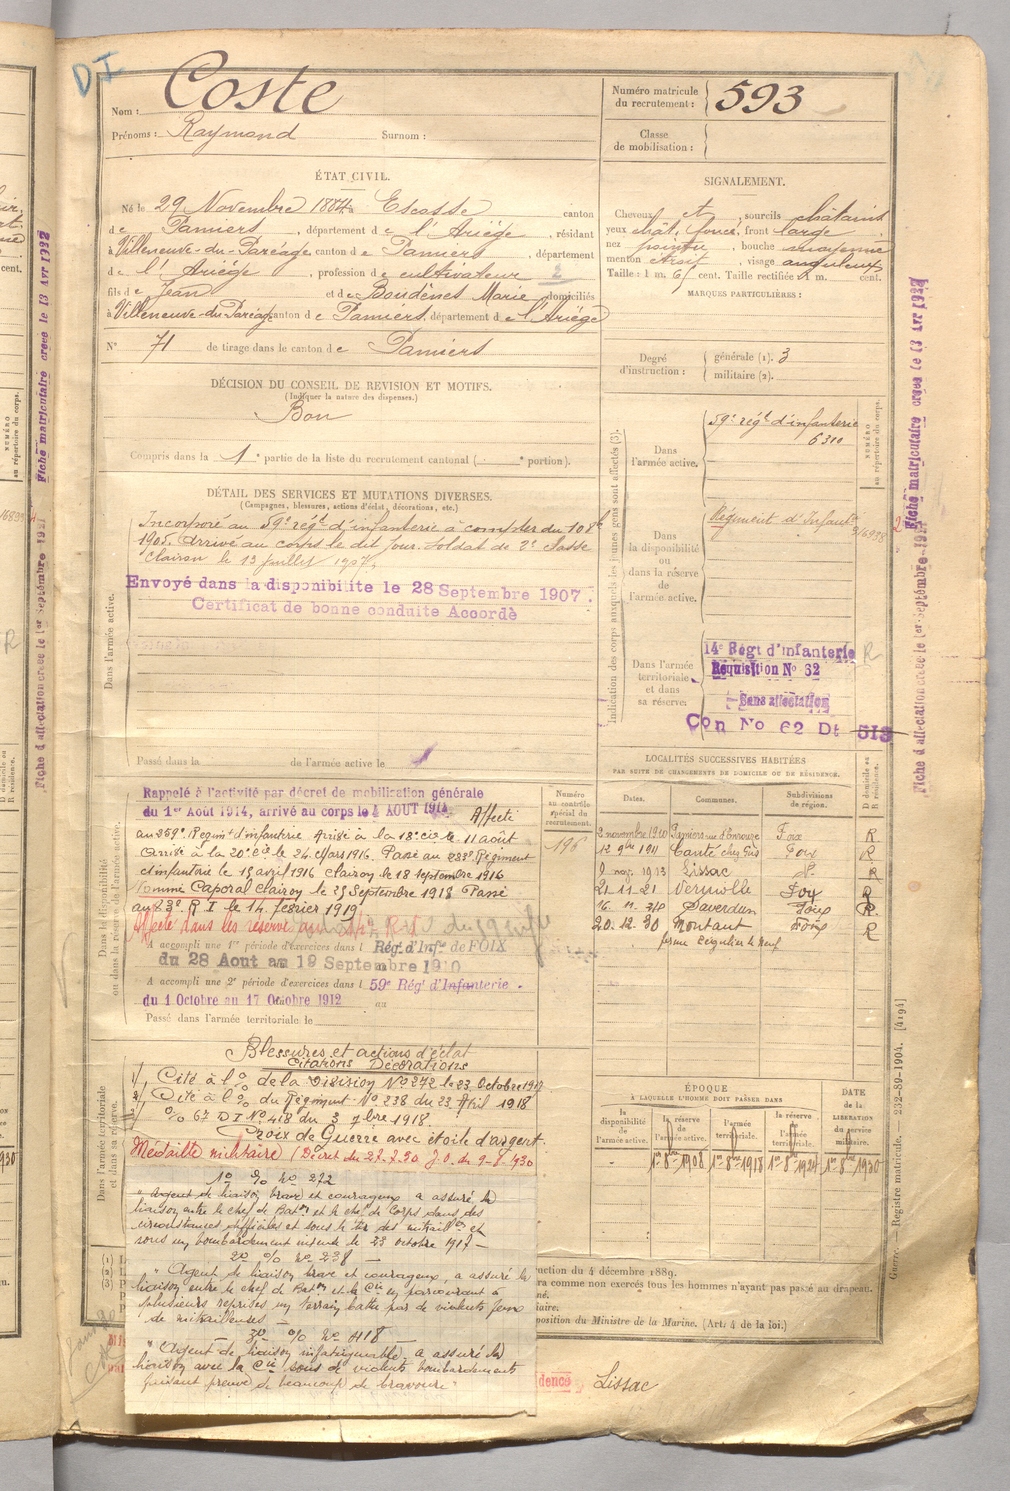 DI
Nom : Coste
Prénoms : Raymond Surnom :
Numéro matricule du recrutement : 593
Classe de mobilisation :
ÉTAT CIVIL.
Né le 29 Novembre 1884 à Escosse canton
de Pamiers, département de l'Ariège, résidant
à Villeneuve-du-Paréage, canton de Pamiers, département
de l'Ariège, profession de cultivateur 2
fils de Jean et de Boudènes Marie, domiciliés
à Villeneuve-du-Paréage canton de Pamiers, département de l'Ariège
N° 71 de tirage dans le canton de Pamiers
SIGNALEMENT.
Cheveux et, sourcils châtains
yeux chât. foncé, front large
nez pointu, bouche moyenne
menton étroit, visage anguleux
Taille : 1 m. 61 cent. Taille rectifiée 1 m. cent.
MARQUES PARTICULIÈRES :
Degré d'instruction : générale (1). 3
militaire (2).
DÉCISION DU CONSEIL DE REVISION ET MOTIFS.
(Indiquer la nature des dispenses.)
Bon
Compris dans la 1e partie de la liste du recrutement cantonal ( e portion).
DÉTAIL DES SERVICES ET MUTATIONS DIVERSES.
(Campagnes, blessures, actions d'éclat, décorations, etc.)
Dans l'armée active.
Incorporé au 59e régt d'infanterie à compter du 10 8bre
1905. Arrivé au corps le dit jour. Soldat de 2e classe
Clairon le 13 juillet 1907.
Envoyé dans la disponibilité le 28 Septembre 1907.
Certificat de bonne conduite Accordé
Passé dans la de l'armée active le
Indication des corps auxquels les jeunes gens sont affectés (3).
NUMÉRO au répertoire du corps.
Dans l'armée active.
59e régt d'infanterie
6310
Dans la disponibilité ou dans la réserve de l'armée active.
Régiment d'Infantie
Dans l'armée territoriale et dans sa réserve.
14e Régt d'infanterie R
Réquisition No 32
Sans affectation
Con No 62 Dt 513
Fiche matriculaire créée le 13 Avr 1932
Fiche d'affectation créée le 1er Septembre 1927
Dans la disponibilité ou dans la réserve de l'armée active.
Rappelé à l'activité par décret de mobilisation générale
du 1er Août 1914, arrivé au corps le 4 AOUT 1914. Affecté
au 259e Régimt d'infanterie. Arrivé à la 18e Cie le 11 août
Arrivé à la 20e Cie le 24 Mars 1916. Passé au 283e Régiment
d'infanterie le 15 avril 1916 Clairon le 18 septembre 1916
Nommé Caporal Clairon le 25 Septembre 1918 Passé
au 83e R I le 14 février 1919
Affecté dans les réserve au
A accompli une 1re période d'exercices dans l Rég. d'Infie de FOIX
du 28 Aout au 19 Septembre 1910
A accompli une 2e période d'exercices dans l 59e Rég' d'Infanterie.
du 1 Octobre au 17 Octobre 1912 au
Passé dans l'armée territoriale le
Numéro au contrôle spécial du recrutement.
196
LOCALITÉS SUCCESSIVES HABITÉES
PAR SUITE DE CHANGEMENTS DE DOMICILE OU DE RÉSIDENCE.
Dates. Communes. Subdivisions de région. D domicile ou R résidence.
2 novembre 1910 Pamiers Foix R
12 9bre 1911 Canté Foix R
9 nov. 1913 Lissac do R
21-11-21 Verniolle Foix R
Saverdun Foix R
20.12.30 Montaut Foix R
Dans l'armée territoriale et dans sa réserve.
Blessures et actions d'éclat
Citations Décorations
1/ Cité à l'o/o de la Division No 272 le 23 Octobre 1917
2/ Cité à l'o/o du Régiment No 238 du 23 Avril 1918
3/ o/o 67 D I No 418 du 3 7bre 1918.
Croix de Guerre avec étoile d'argent.
Médaille militaire (Décret du J.O. du 9-8-1930
ÉPOQUE
À LAQUELLE L'HOMME DOIT PASSER DANS
la disponibilité de l'armée active. la réserve de l'armée active. l'armée territoriale. la réserve de l'armée territoriale. DATE de la LIBÉRATION du service militaire.
- 1er 8bre 1908 1er 8bre 1918 1er 8bre 1924 1er 8bre 1930
1o o/o No 272
"Agent de liaison brave et courageux a assuré la
liaison entre le chef de Baton et le chef de Corps dans des
circonstances difficiles et sous le tir des mitrailses et
sous un bombardement intense le 23 octobre 1917 -
2o o/o No 238 -
"Agent de liaison brave et courageux, a assuré la
liaison entre le chef de Baton et la Cie en parcourant à
plusieurs reprises un terrain battu par de violents feux
de mitrailleuses -
3o o/o No 418 -
"Agent de liaison infatiguable, a assuré la
liaison avec la Cie sous de violents bombardements
faisant preuve de beaucoup de bravoure"
(1) L
(2) L
(3) P
ruction du 4 décembre 1889.
ra comme non exercés tous les hommes n'ayant pas passé au drapeau.
né.
iaire.
position du Ministre de la Marine. (Art. 4 de la loi.)
dence Lissac
Guerre. — Registre matricule. — 232-89-1904. [4194]